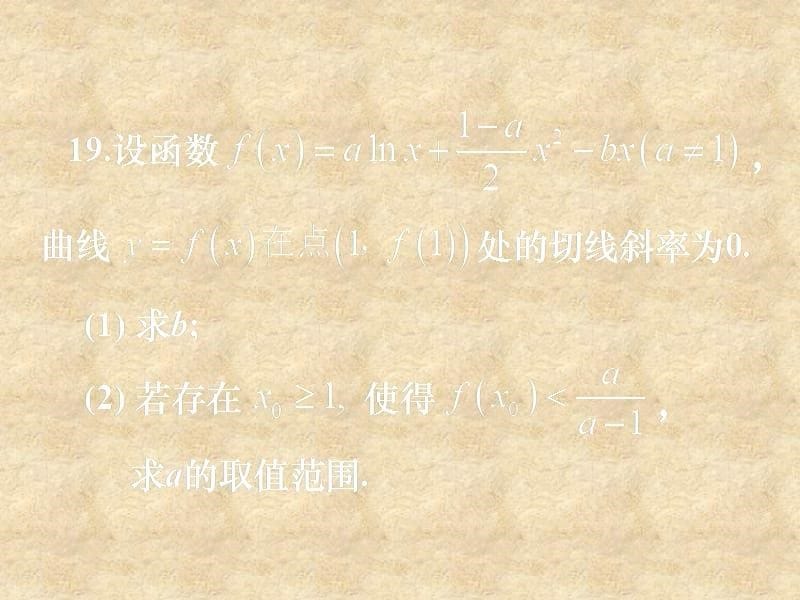 19.设函数 f(x)=a ln x+\frac{1-a}{2}x^2-bx(a≠1),
曲线 y=f(x)在点(1, f(1))处的切线斜率为0.
(1) 求b;
(2) 若存在 x_0≥1, 使得 f(x_0)<\frac{a}{a-1},
求a的取值范围.